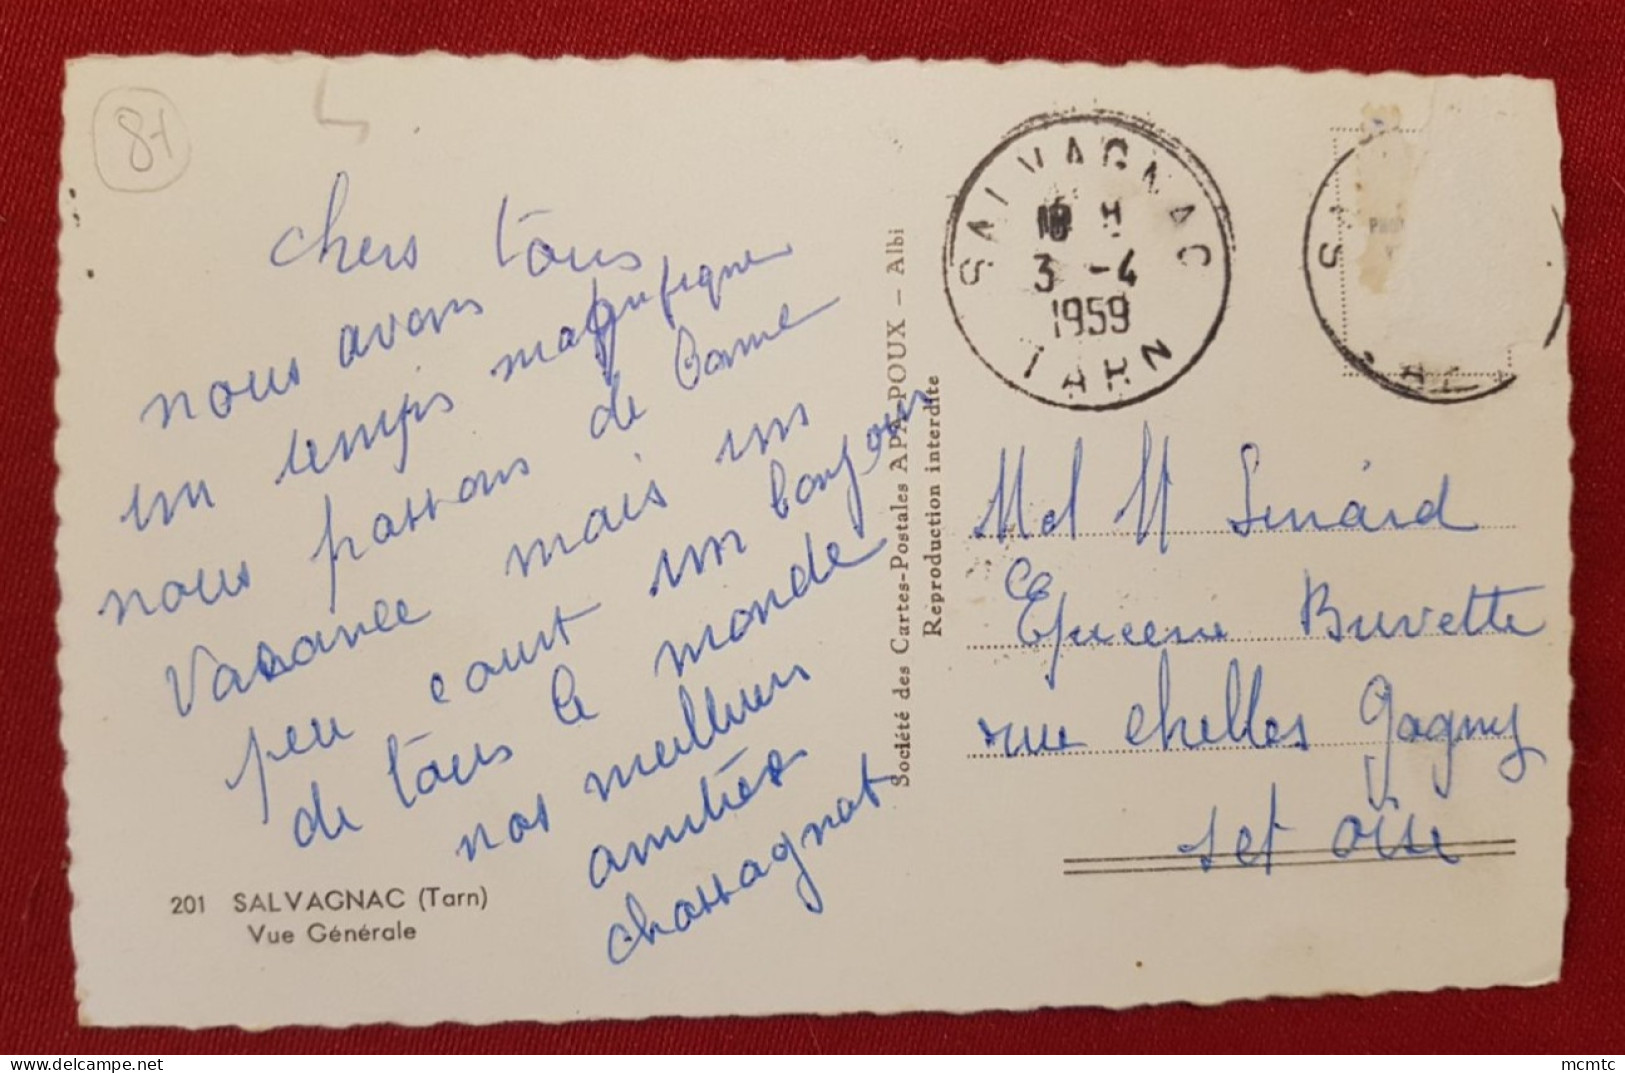 81
chers tous
nous avons
un temps magnifique
nous passons de bonne
Vacance mais un
peu court un bonjour
de tous le monde
nos meilleurs
amitiés
chassagnat
201 SALVAGNAC (Tarn)
Vue Générale
Société des Cartes-Postales APA-POUX - Albi
Reproduction interdite
SALVAGNAC
H
3 -4
1959
TARN
Md M Sinard
Epicerie Buvette
rue chelles Gagny
S et Oise
mcmtc